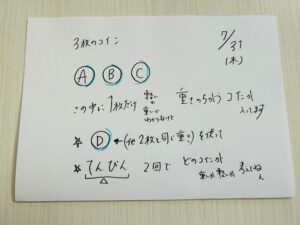 3枚のコイン
7/31
(木)
A B C
この中に1枚だけ 軽いか重いかわからないけど 重さのちがう コインが
入ってます
☆ D ←(他2枚と同じ重さ)を使って
☆ てんびん 2回で どのコインが
重いか軽いか 考えてね